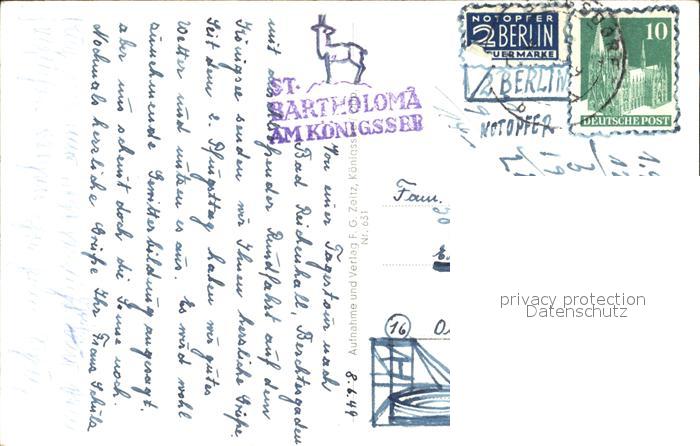 NOTOPFER
2 BERLIN
STEUERMARKE
10
DEUTSCHE POST
2 BERLIN
NOTOPFER
ST.
BARTHOLOMÄ
AM KÖNIGSSEE
8.6.49
Von einer Tagestour nach
Bad Reichenhall, Berchtesgaden
mit Rundfahrt auf dem
Königsee senden wir Ihnen herzliche Grüße.
Seit dem 2. Pfingsttag haben wir gutes
Wetter und nutzen es aus. Es wird wohl
zunehmende Gewitterbildung angesagt.
aber uns scheint doch die Sonne noch.
Nochmals herzliche Grüße Ihr Franz Schulz
Aufnahme und Verlag F. G. Zeitz, Königssee
Nr. 631
Fam.
16
privacy protection
Datenschutz